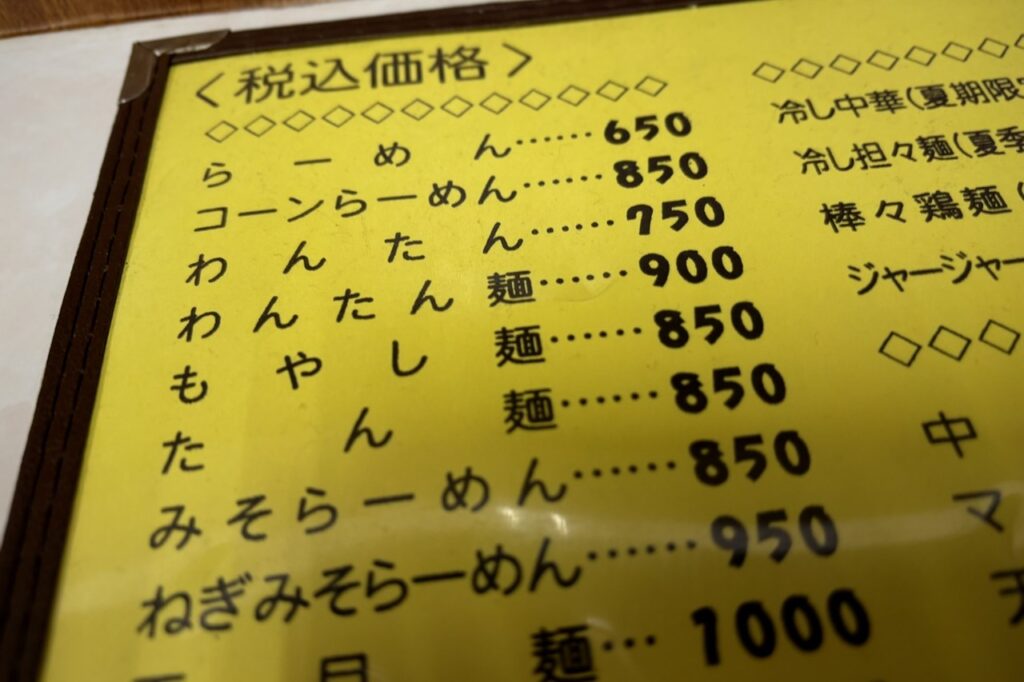 〈税込価格〉
◇◇◇◇◇◇◇◇◇◇◇◇
らーめん……650
コーンらーめん……850
わんたん……750
わんたん麺……900
もやし麺……850
たん麺……850
みそらーめん……850
ねぎみそらーめん……950
目麺…1000
◇◇◇◇◇◇◇
冷し中華(夏期限
冷し担々麺(夏季
棒々鶏麺(
ジャージャー
◇◇◇
中
マ